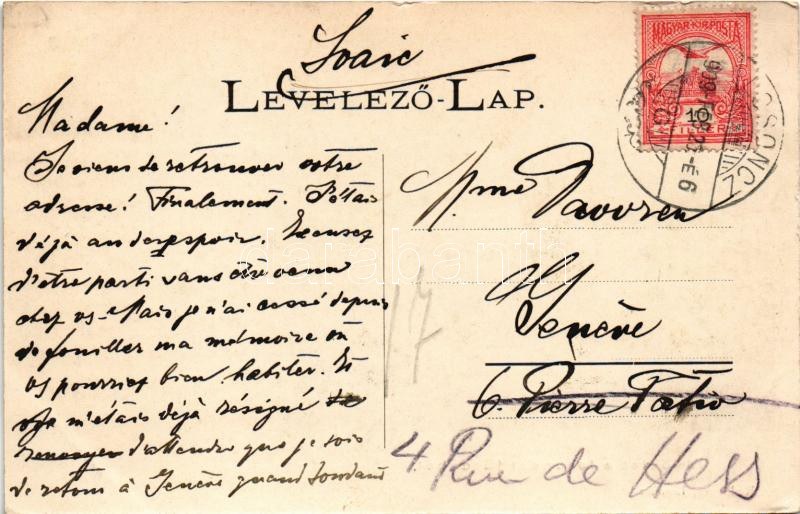 Svaic
LEVELEZŐ-LAP.
MAGYAR KIR. POSTA
10
FILLÉR
909
É6
Madame!
Je viens de retrouver votre
adresse! Finalement. J'étais
déjà au desespoir. Excusez
d'être parti sans être venu
chez vs - Mais je n'ai cessé depuis
de fouiller ma mémoire où
vs pourriez bien habiter. Et
m'étais déjà résigné
d'attendre que je sois
de retour à Genève quand
Mme
Genève
6. Pierre Fatio
4 Rue de Hess
17
darabanth